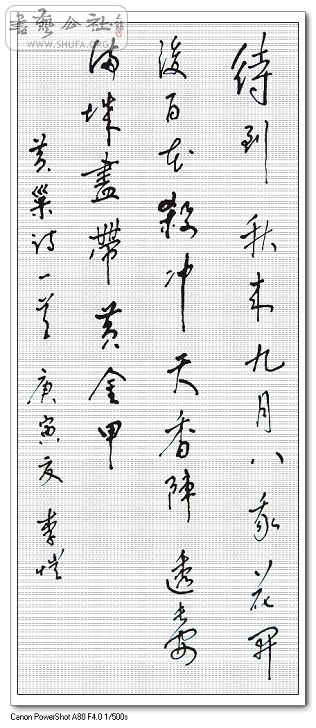 書藝公社
WWW.SHUFA.ORG
待到秋来九月八我花开
後百花殺冲天香陣透長安
满城盡帶黄金甲
黄巢诗一首 庚寅夏 李恺
Canon PowerShot A80 F4.0 1/500s